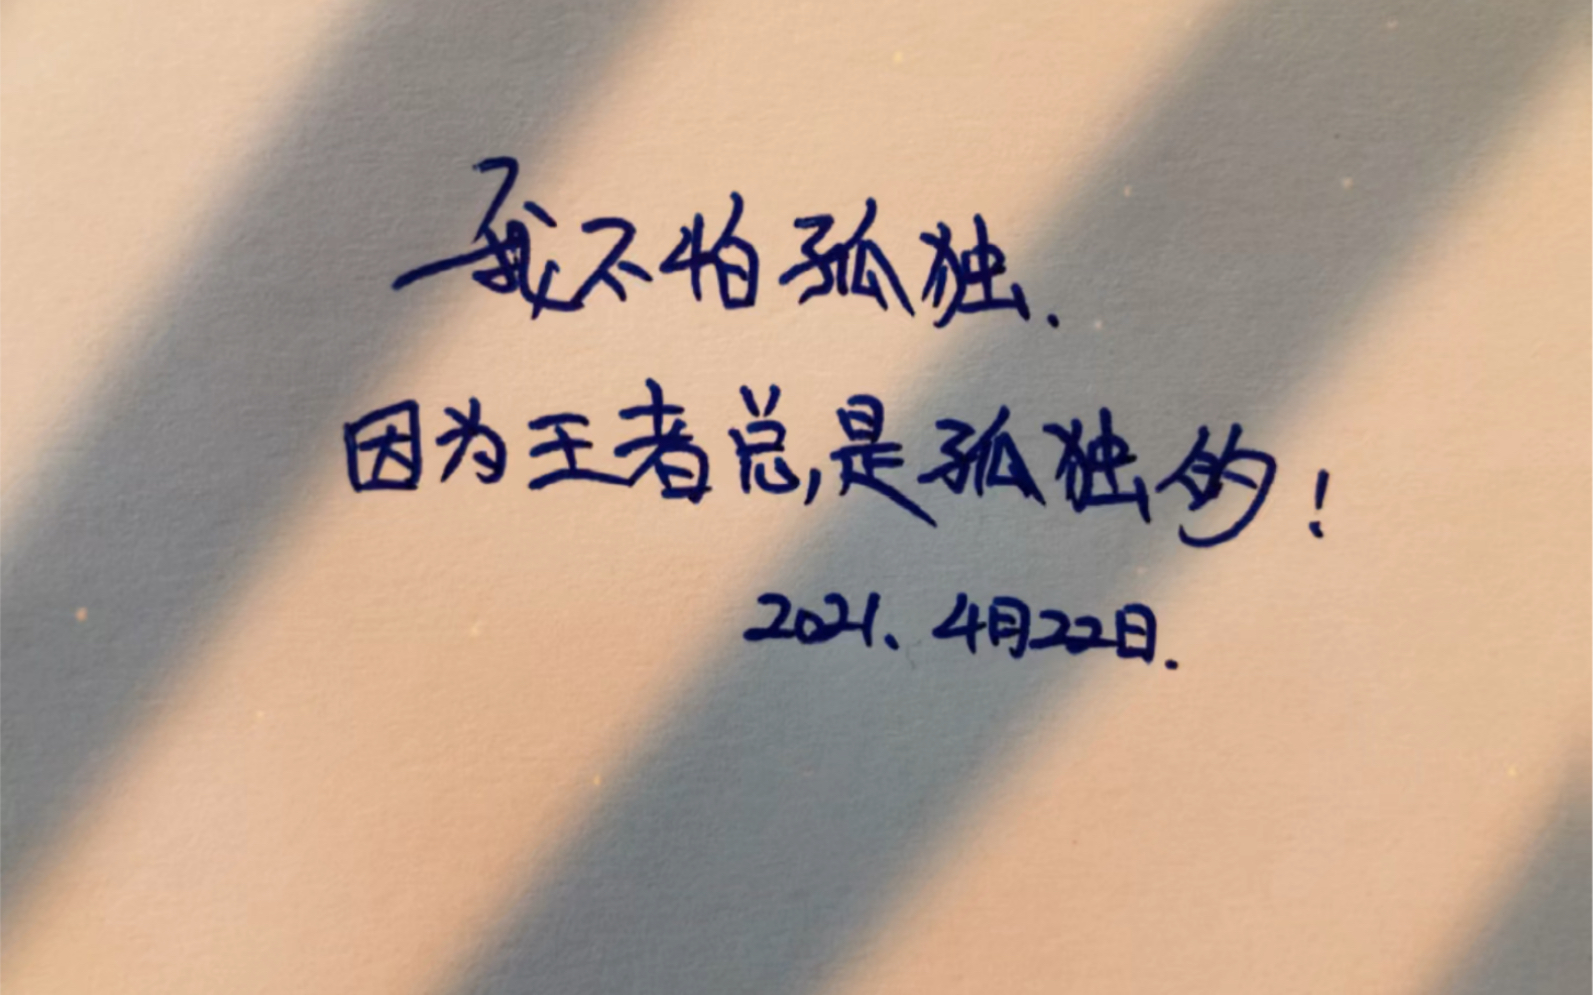 我不怕孤独.
因为王者总,是孤独的!
2021、4月22日.